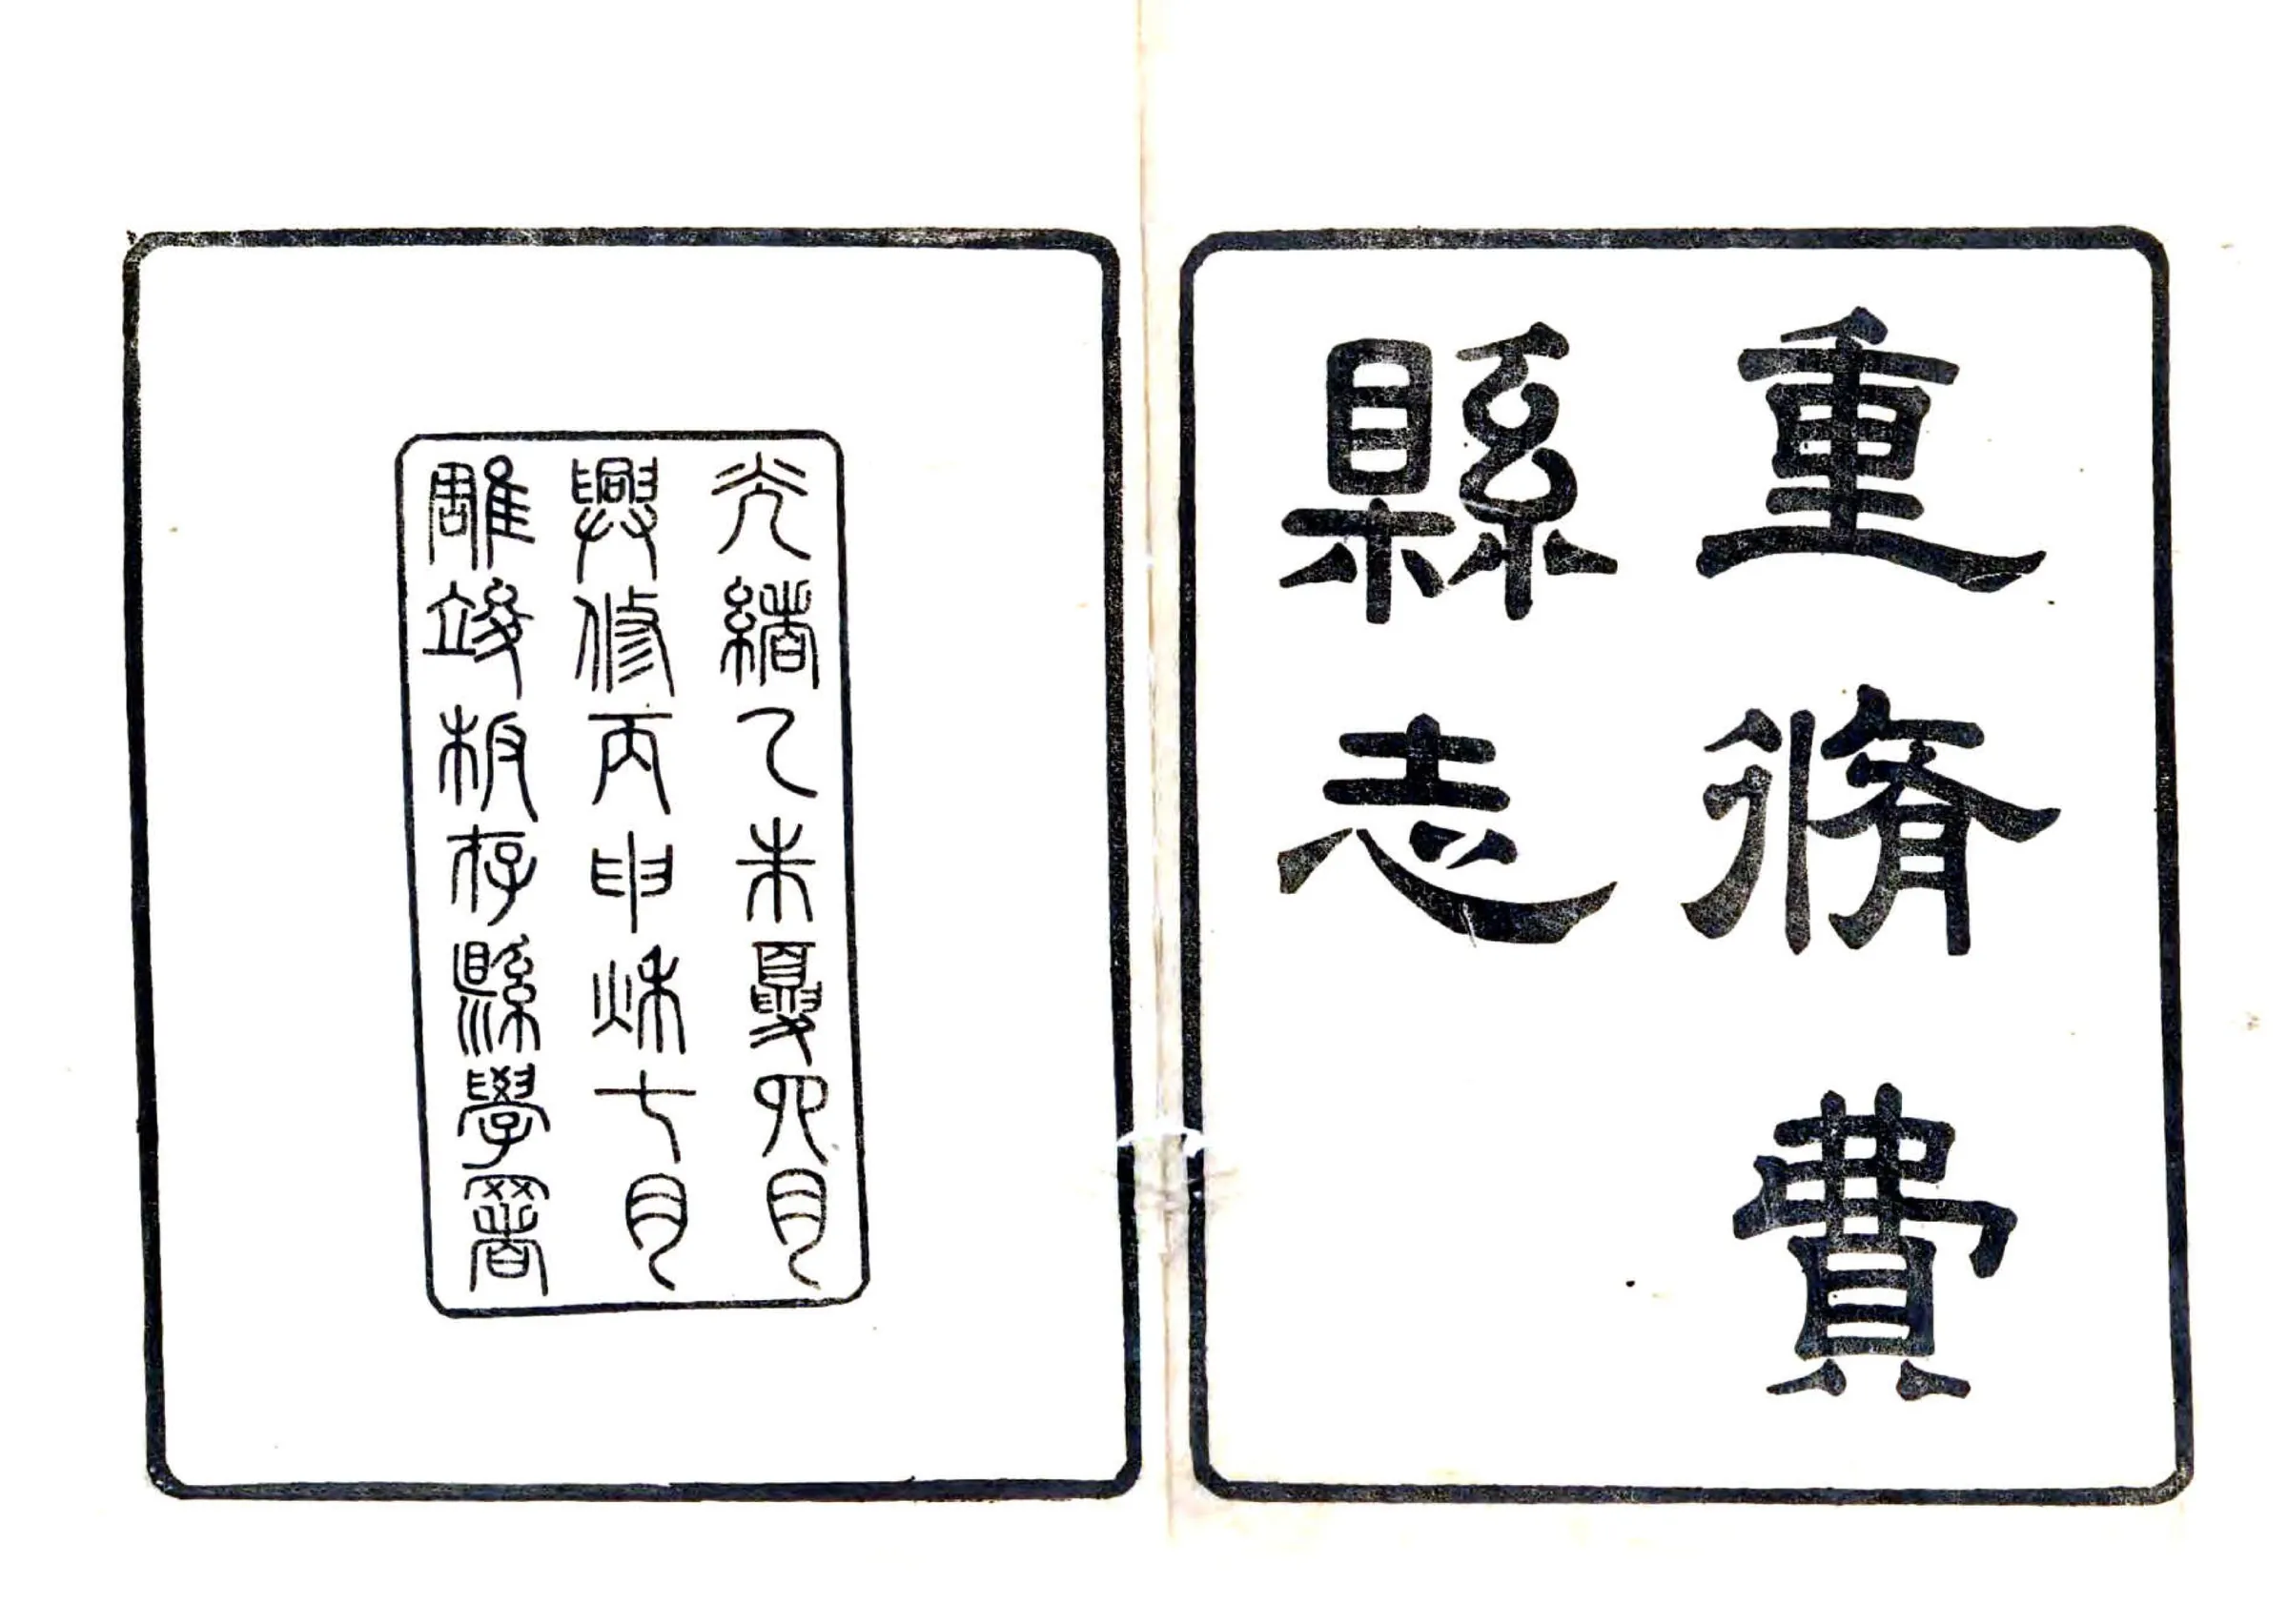 重脩費
縣志
光緒乙未夏四月
興修丙申秌七月
雕竣板存縣學署